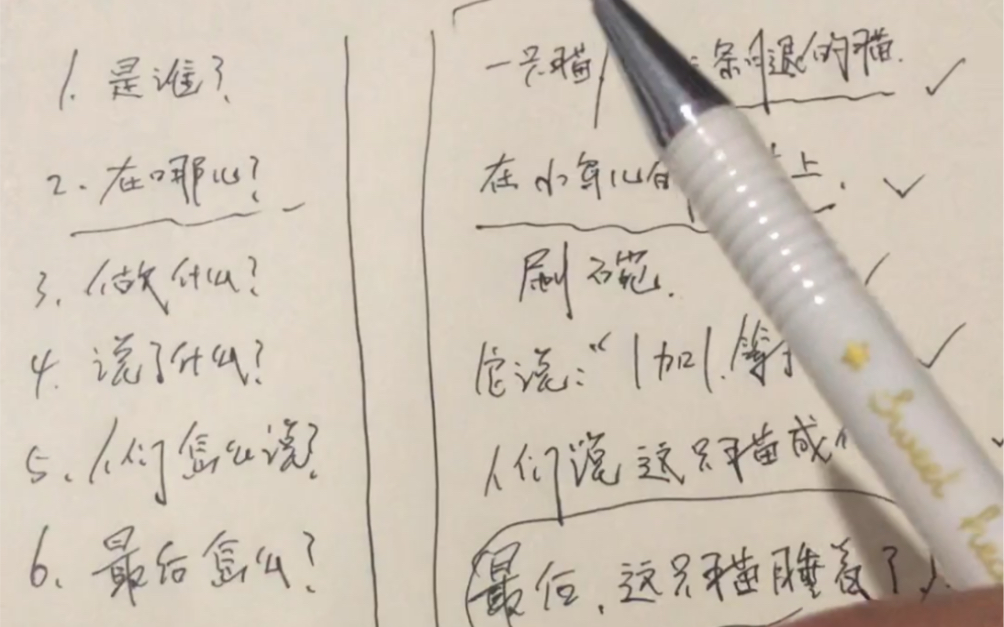 1. 是谁？
2. 在哪儿？
3. 做什么？
4. 说了什么？
5. 人们怎么说？
6. 最后怎么？
一只猫 条腿的猫.
在小年儿 上.
刷碗.
它说：“1加1.等于
人们说这只猫成
最后，这只猫睡着了
Sweet hea